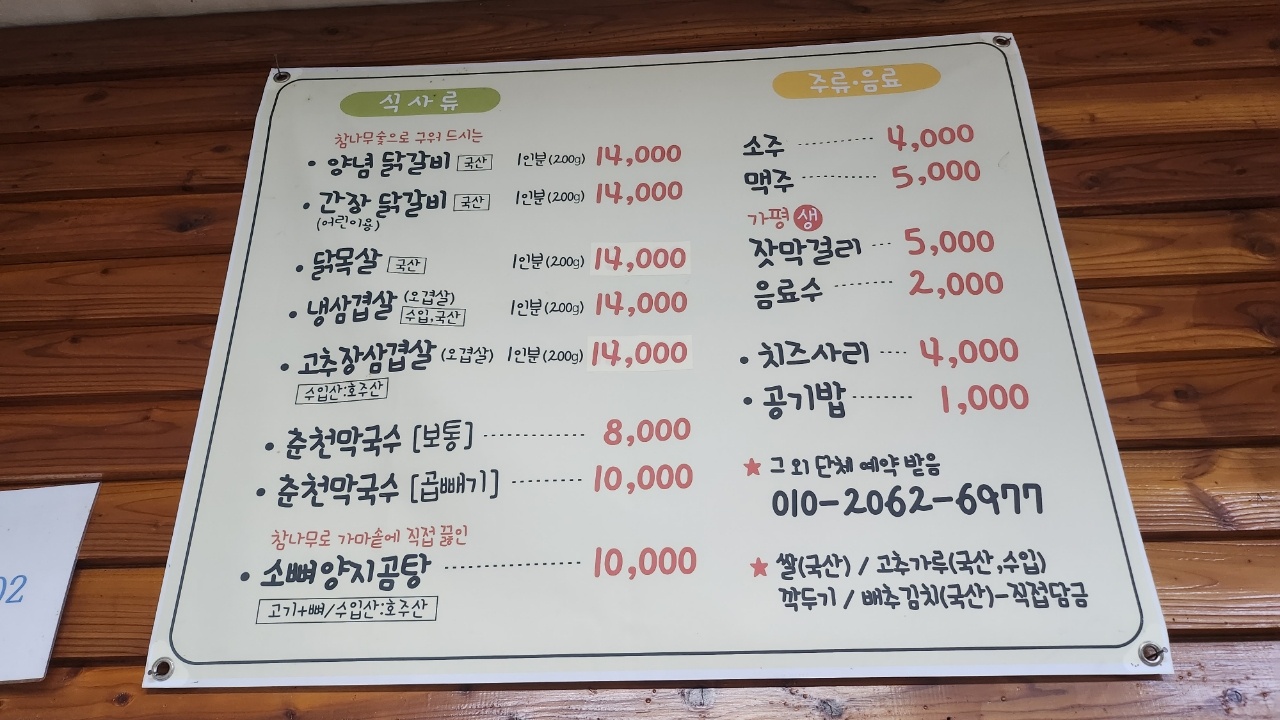 식사류
참나무숯으로 구워 드시는
• 양념 닭갈비 국산 1인분(200g) 14,000
• 간장 닭갈비 국산 1인분(200g) 14,000
(어린이용)
• 닭목살 국산 1인분(200g) 14,000
• 냉삼겹살 (오겹살) 수입,국산 1인분(200g) 14,000
• 고추장삼겹살 (오겹살) 1인분(200g) 14,000
수입산:호주산
• 춘천막국수 [보통] 8,000
• 춘천막국수 [곱빼기] 10,000
참나무로 가마솥에 직접 끓인
• 소뼈양지곰탕 10,000
고기+뼈/수입산:호주산
주류·음료
소주 4,000
맥주 5,000
가평 생
잣막걸리 5,000
음료수 2,000
• 치즈사리 4,000
• 공기밥 1,000
★ 그 외 단체 예약 받음
010-2062-6977
★ 쌀(국산) / 고추가루(국산,수입)
깍두기 / 배추김치(국산)-직접담금
02